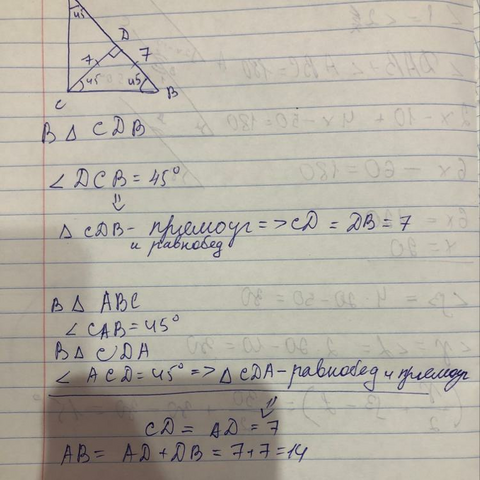 45
D
7 7
45 45
C B
В △ CDB
∠ DCB = 45°
⇓
△ CDB - прямоуг => CD = DB = 7
и равнобед
В △ ABC
∠ CAB = 45°
В △ CDA
∠ ACD = 45° => △ CDA - равнобед и прямоуг
⇓
CD = AD = 7
AB = AD + DB = 7+7=14